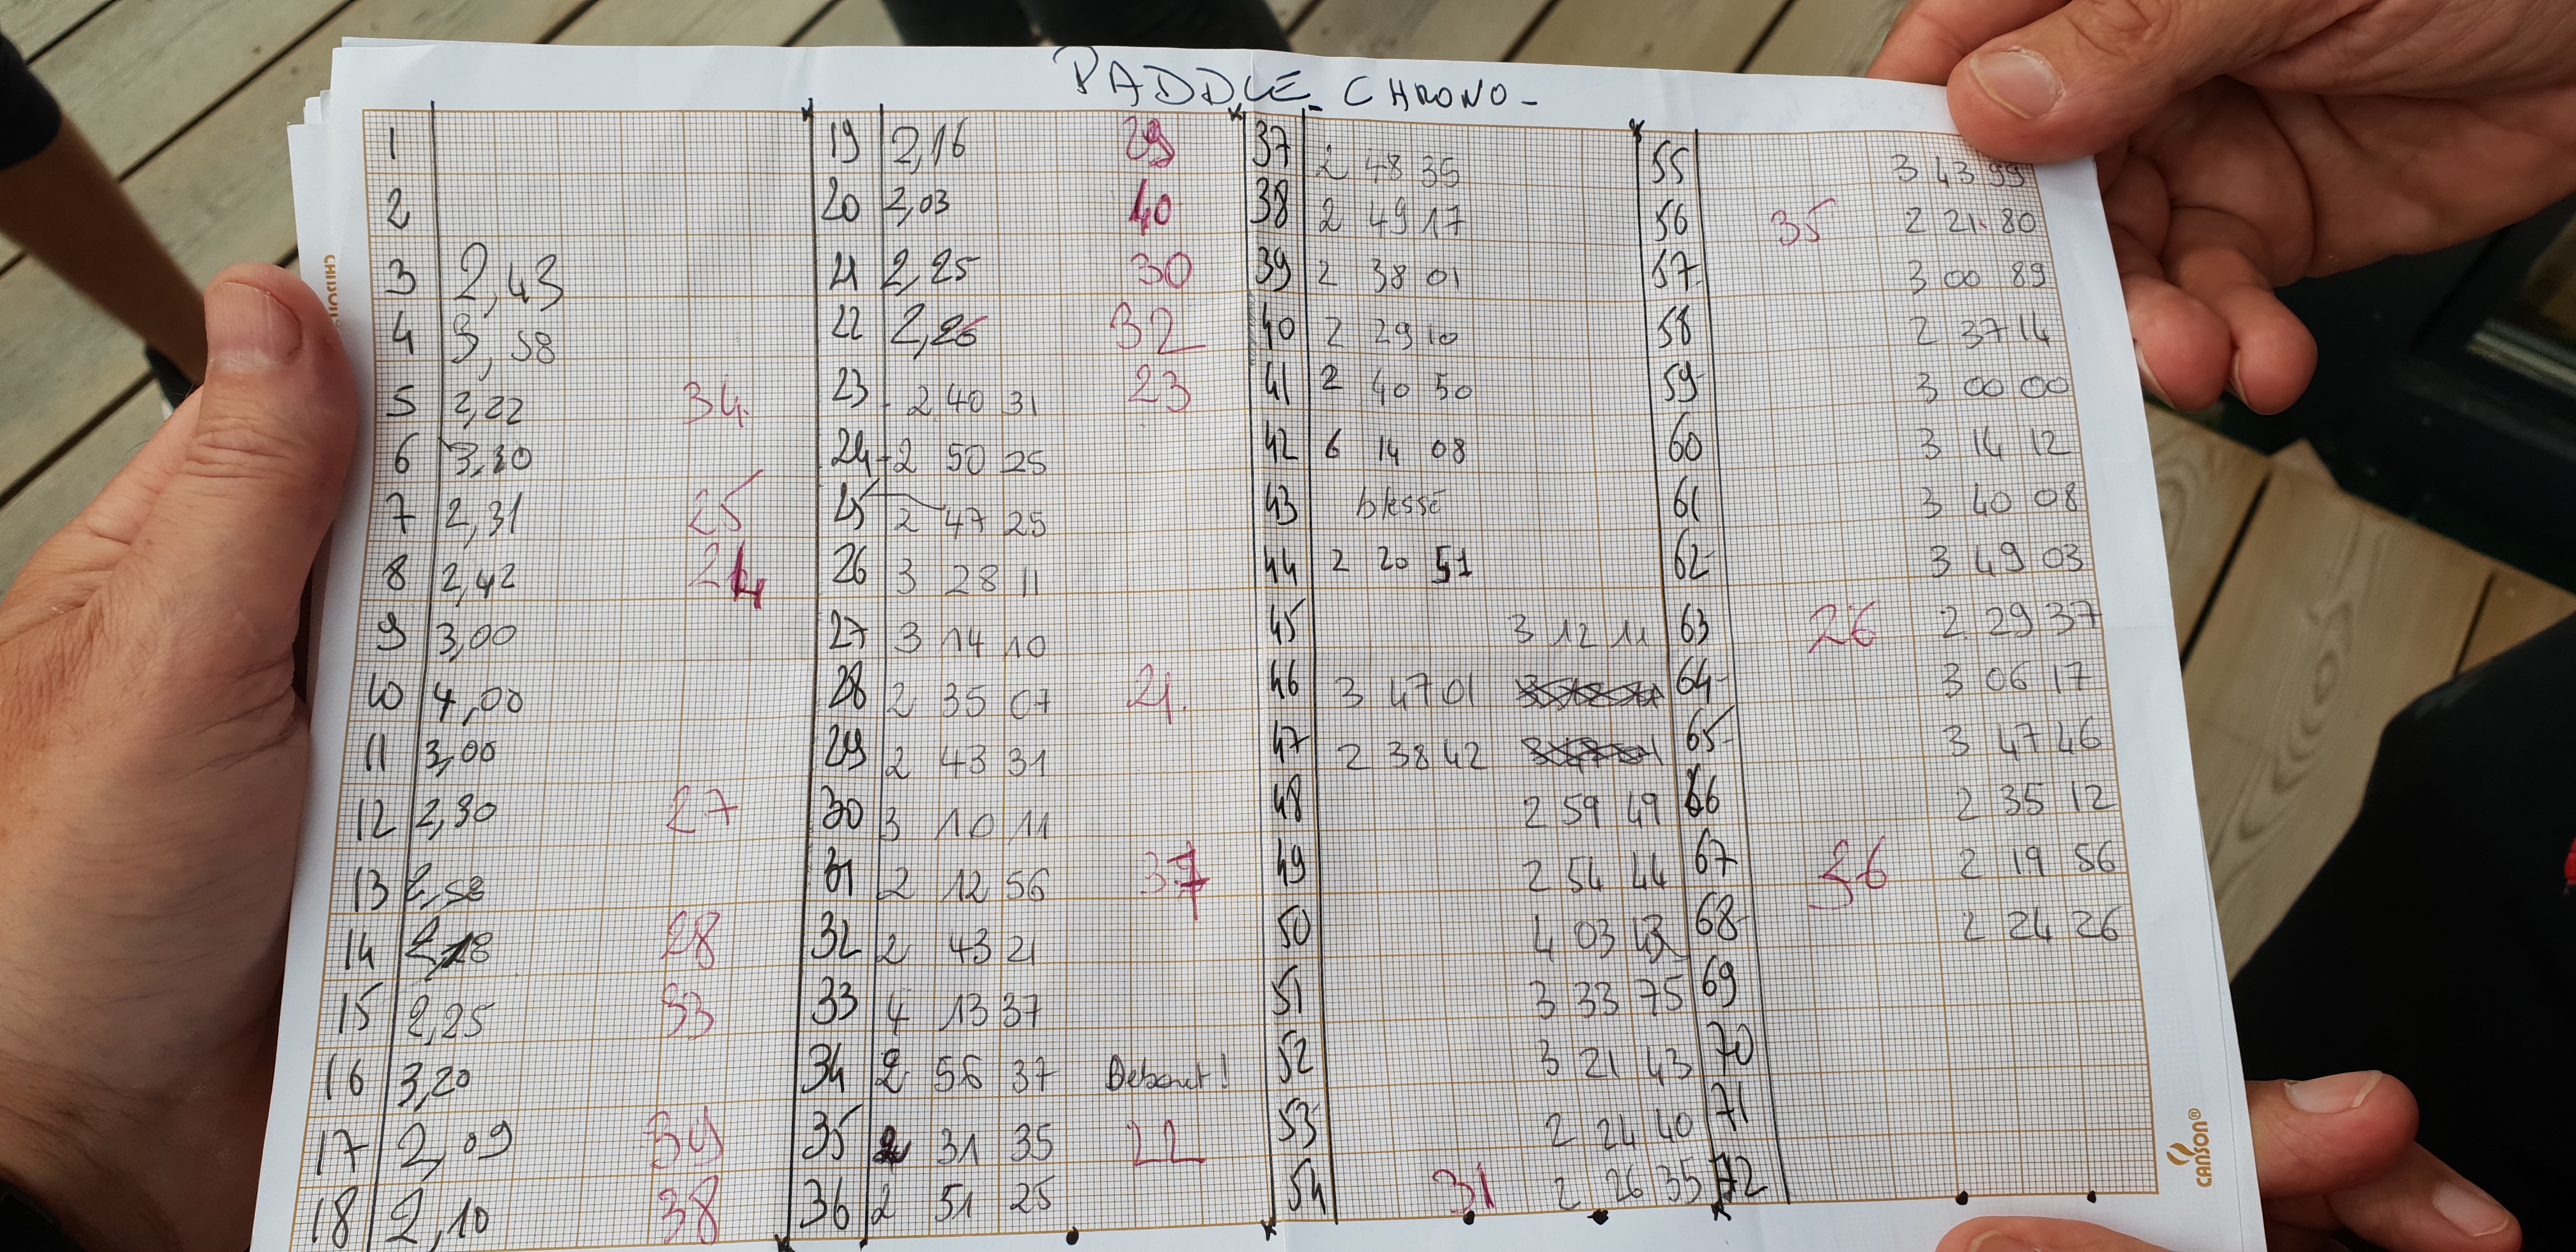 PADDLE_ CHRONO -
1
2
3 2,43
4 3,58
5 2,22 34
6 3,30
7 2,31 25
8 2,42 24
9 3,00
10 4,00
11 3,00
12 2,30 27
13 2,58
14 2,28 28
15 2,25 33
16 3,20
17 2,09 39
18 2,10 38
19 2,16 29
20 2,03 40
21 2,25 30
22 2,26 32
23 2 40 31 23
24 2 50 25
25 2 47 25
26 3 28 11
27 3 14 10
28 2 35 07 21.
29 2 43 31
30 3 10 11
31 2 12 56 37
32 2 43 21
33 4 13 37
34 2 56 37 Debout !
35 2 31 35 22
36 2 51 25
37 2 48 35
38 2 49 17
39 2 38 01
40 2 29 10
41 2 40 50
42 6 14 08
43 blessé
44 2 20 51
45 3 12 11
46 3 47 01
47 2 38 42
48 2 59 49
49 2 54 44
50 4 03 43
51 3 33 75
52 3 21 43
53 2 24 40
54 31 2 26 35
55 3 43 99
56 35 2 21 80
57 3 00 89
58 2 37 14
59 3 00 00
60 3 14 12
61 3 40 08
62 3 49 03
63 26 2 29 37
64 3 06 17
65 3 47 46
66 2 35 12
67 36 2 19 56
68 2 24 26
69
70
71
72
CANSON®